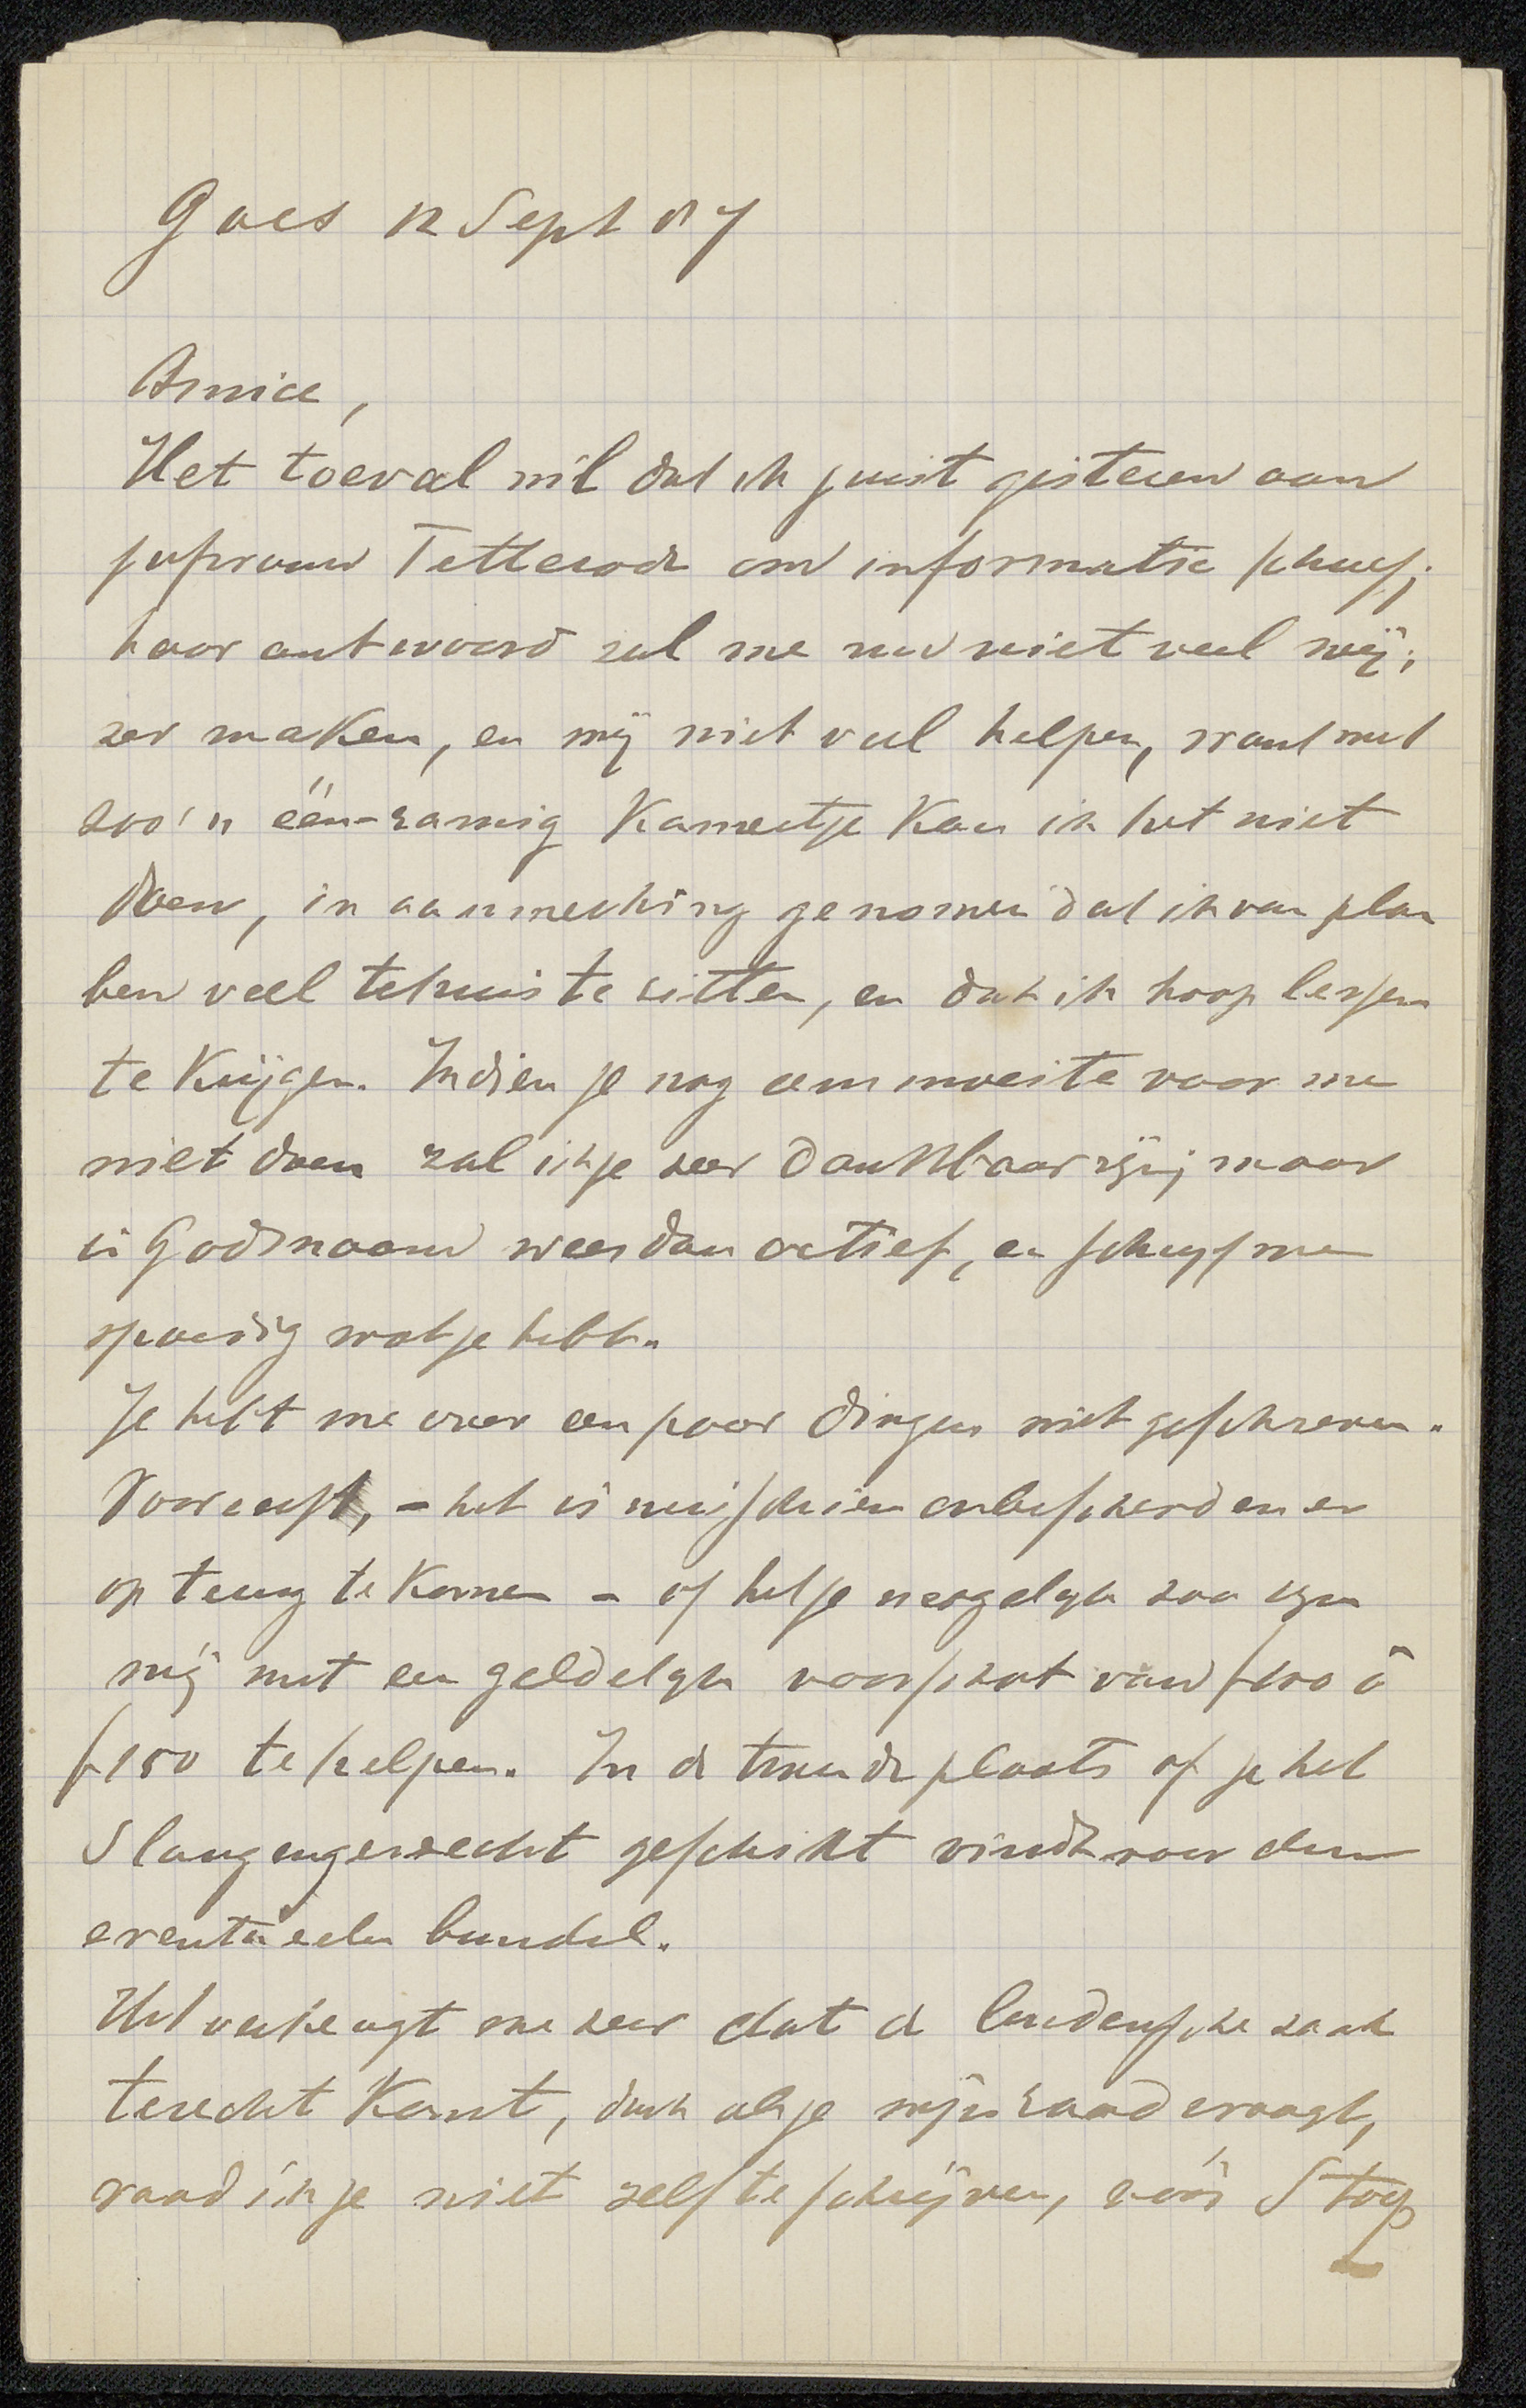 Goes 12 Sept 87
Amice,
Het toeval wil dat ik juist gisteren aan
jufvrouw Tetterode om informatie schreef;
haar antwoord zal me nu niet veel wij-
zer maken, en mij niet veel helpen, want met
zoo'n één-ramig kamertje kan ik het niet
doen, in aanmerking genomen dat ik van plan
ben veel tehuis te zitten, en dat ik hoop lessen
te krijgen. Indien je nog eens moeite voor me
wilt doen zal ik je zeer dankbaar zijn; maar
in Godsnaam wees dan actief, en schrijf me
spoedig wat je hebt.
Je hebt me over een paar dingen niet geschreven.
Vooreerst, - het is misschien onbescheiden er
op terug te komen - of het je mogelijk zou zijn
mij met een geldelijk voorschot van f 100 à
f 150 te helpen. In de tweede plaats of je het
Slangengevecht geschikt vindt voor den
eventueelen bundel.
Het verheugt me zeer dat de Leidensche zaak
terecht komt, doch als je mijn raad vraagt,
raad ik je niet zelf te schrijven, vóór Stoop